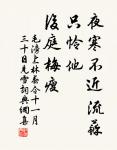 夜寒不近流蘇
只怜他
後庭梅瘦
毛滂上林春令十一月
三十日見雪詞與綢喜